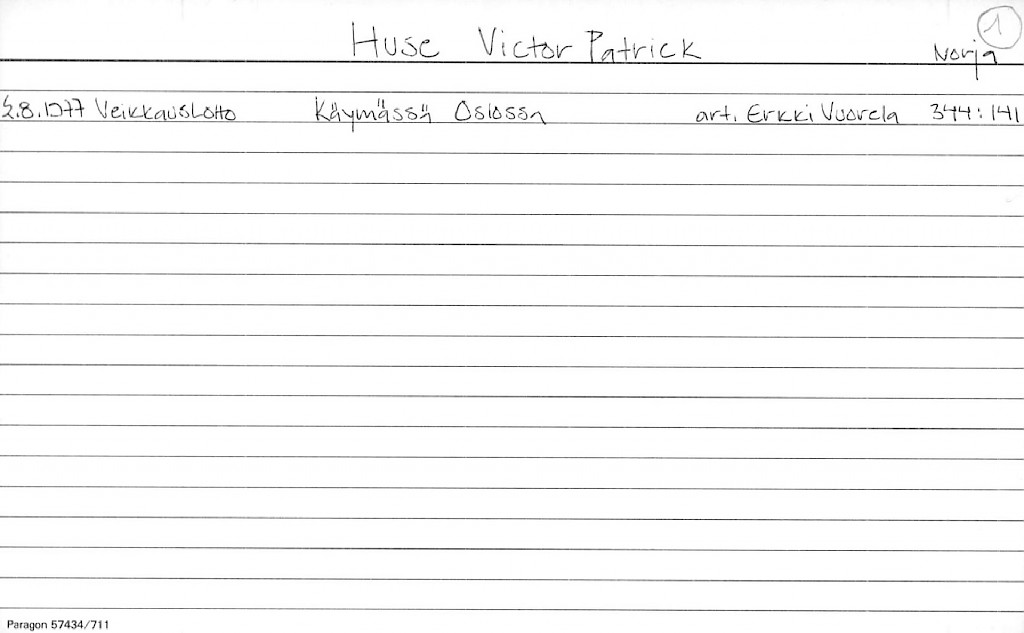 1
Huse Victor Patrick Norja
2.8.1977 Veikkauslotto Käymässä Oslossa art. Erkki Vuorela 344:141
Paragon 57434/711